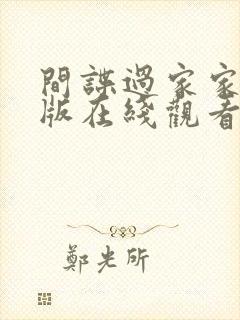 間諜過家家
版在綫觀看
鄭光所